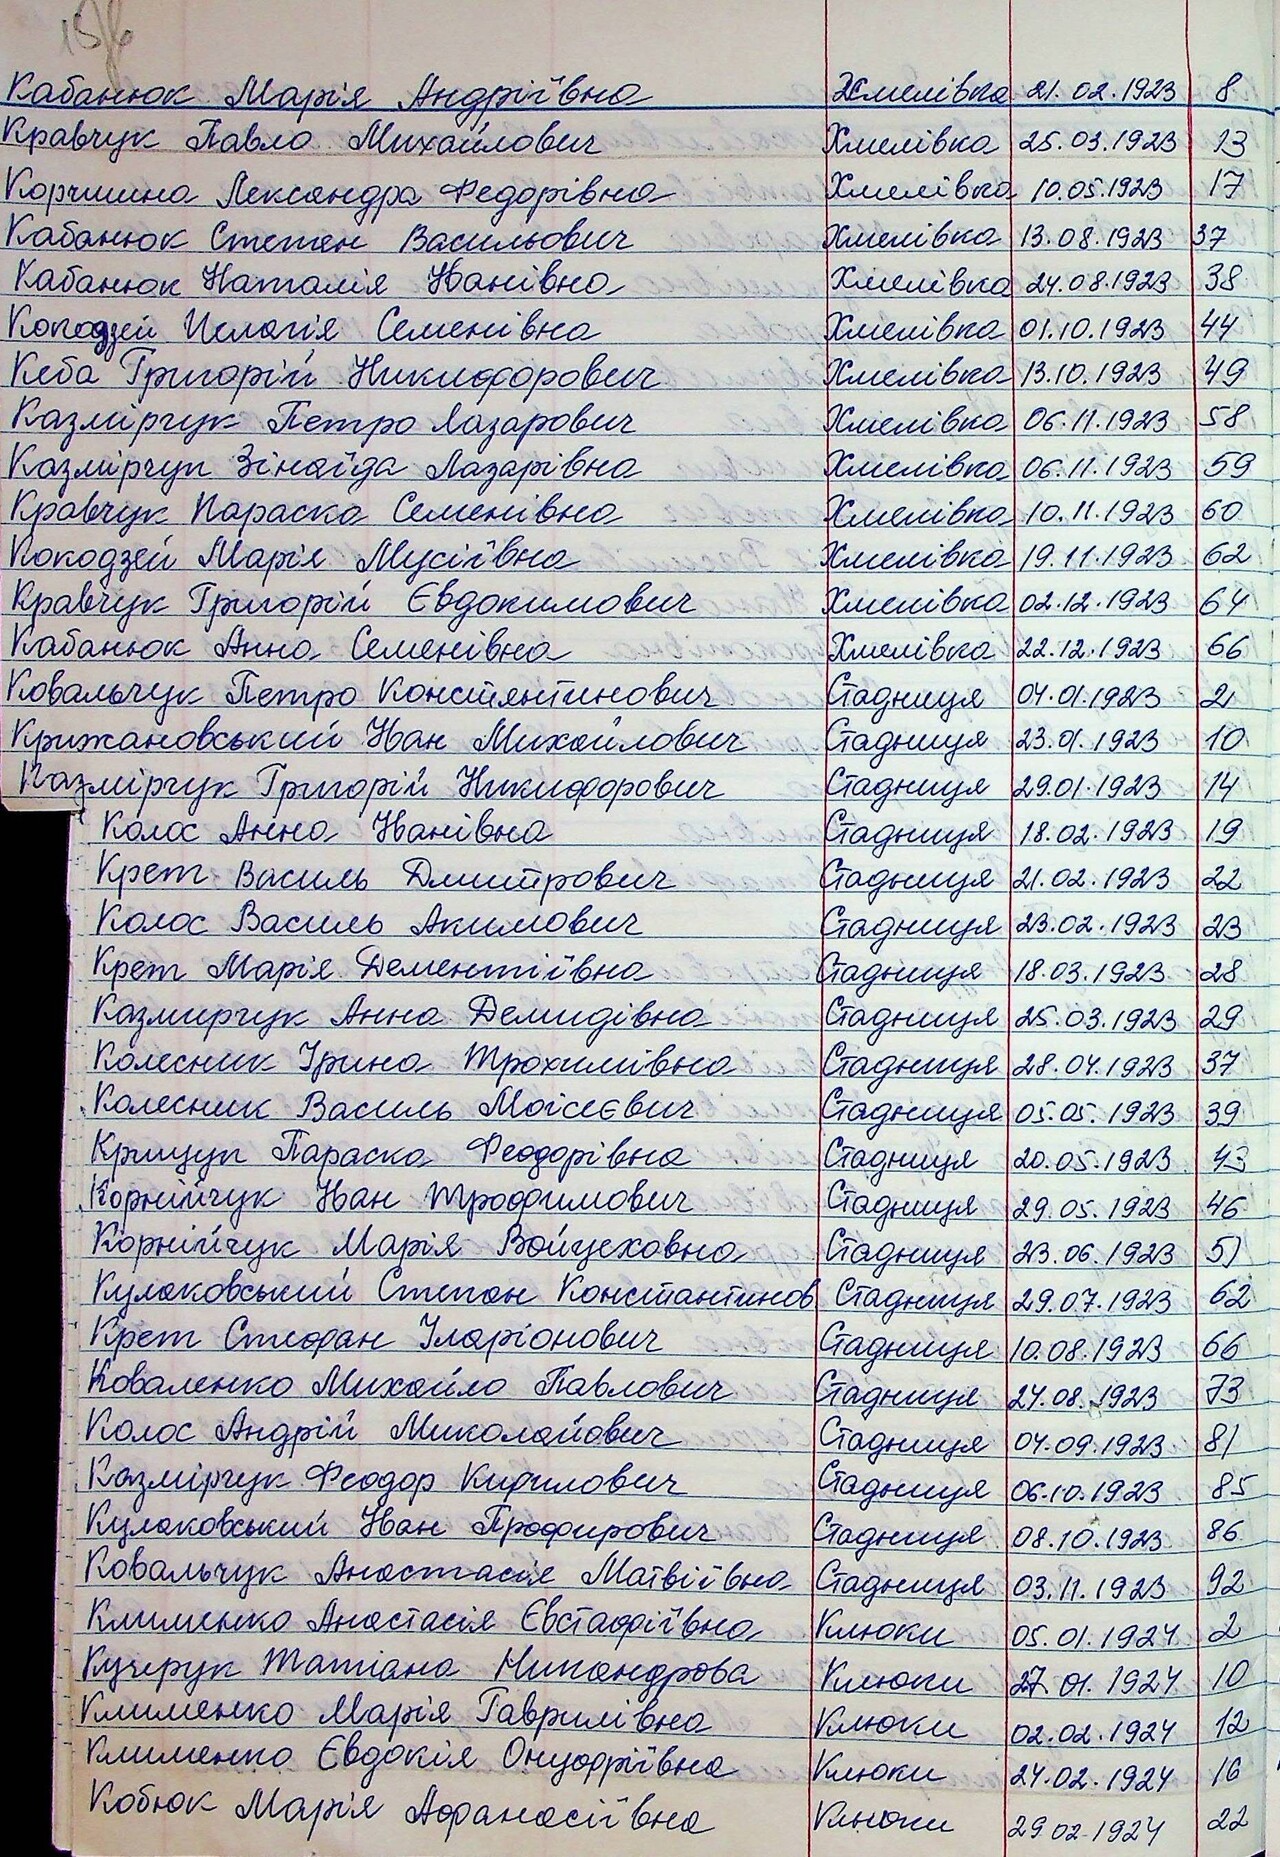 Кабанюк Марія Андріївна Хмелівка 21.02.1923 8
Кравчук Павло Михайлович Хмелівка 25.03.1923 13
Корчмина Лександра Федорівна Хмелівка 10.05.1923 17
Кабанюк Степан Васильович Хмелівка 13.08.1923 37
Кабанюк Наталія Іванівна Хмелівка 24.08.1923 38
Кокодзей Пелагія Семенівна Хмелівка 01.10.1923 44
Кеба Григорій Никифорович Хмелівка 13.10.1923 49
Казмірчук Петро Лазарович Хмелівка 06.11.1923 58
Казмірчук Зінаїда Лазарівна Хмелівка 06.11.1923 59
Кравчук Параска Семенівна Хмелівка 10.11.1923 60
Кокодзей Марія Мусіївна Хмелівка 19.11.1923 62
Кравчук Григорій Євдокимович Хмелівка 02.12.1923 64
Кабанюк Анна Семенівна Хмелівка 22.12.1923 66
Ковальчук Петро Констянтинович Стадниця 04.01.1923 2
Крижановський Іван Михайлович Стадниця 23.01.1923 10
Казмірчук Григорій Никифорович Стадниця 29.01.1923 14
Колос Анна Іванівна Стадниця 18.02.1923 19
Крет Василь Дмитрович Стадниця 21.02.1923 22
Колос Василь Акимович Стадниця 23.02.1923 23
Крет Марія Дементіївна Стадниця 18.03.1923 28
Казмирчук Анна Демидівна Стадниця 25.03.1923 29
Колесник Ірина Трохимівна Стадниця 28.04.1923 37
Колесник Василь Моісєєвич Стадниця 05.05.1923 39
Крищук Параска Феодорівна Стадниця 20.05.1923 43
Корнійчук Іван Трофимович Стадниця 29.05.1923 46
Корнійчук Марія Войцеховна Стадниця 23.06.1923 51
Кулаковський Степан Константинов Стадниця 29.07.1923 62
Крет Стефан Іларіонович Стадниця 10.08.1923 66
Коваленко Михайло Павлович Стадниця 24.08.1923 73
Колос Андрій Миколайович Стадниця 04.09.1923 81
Казмірчук Феодор Кирилович Стадниця 06.10.1923 85
Кулаковський Іван Профирович Стадниця 08.10.1923 86
Ковальчук Анастасія Матвіївна Стадниця 03.11.1923 92
Клименко Анастасія Євстафіївна Клюки 05.01.1924 2
Кучерук Татіана Никандрова Клюки 27.01.1924 10
Клименко Марія Гаврилівна Клюки 02.02.1924 12
Клименко Євдокія Онуфріївна Клюки 24.02.1924 16
Кобюк Марія Афанасіївна Клюки 29.02.1924 22